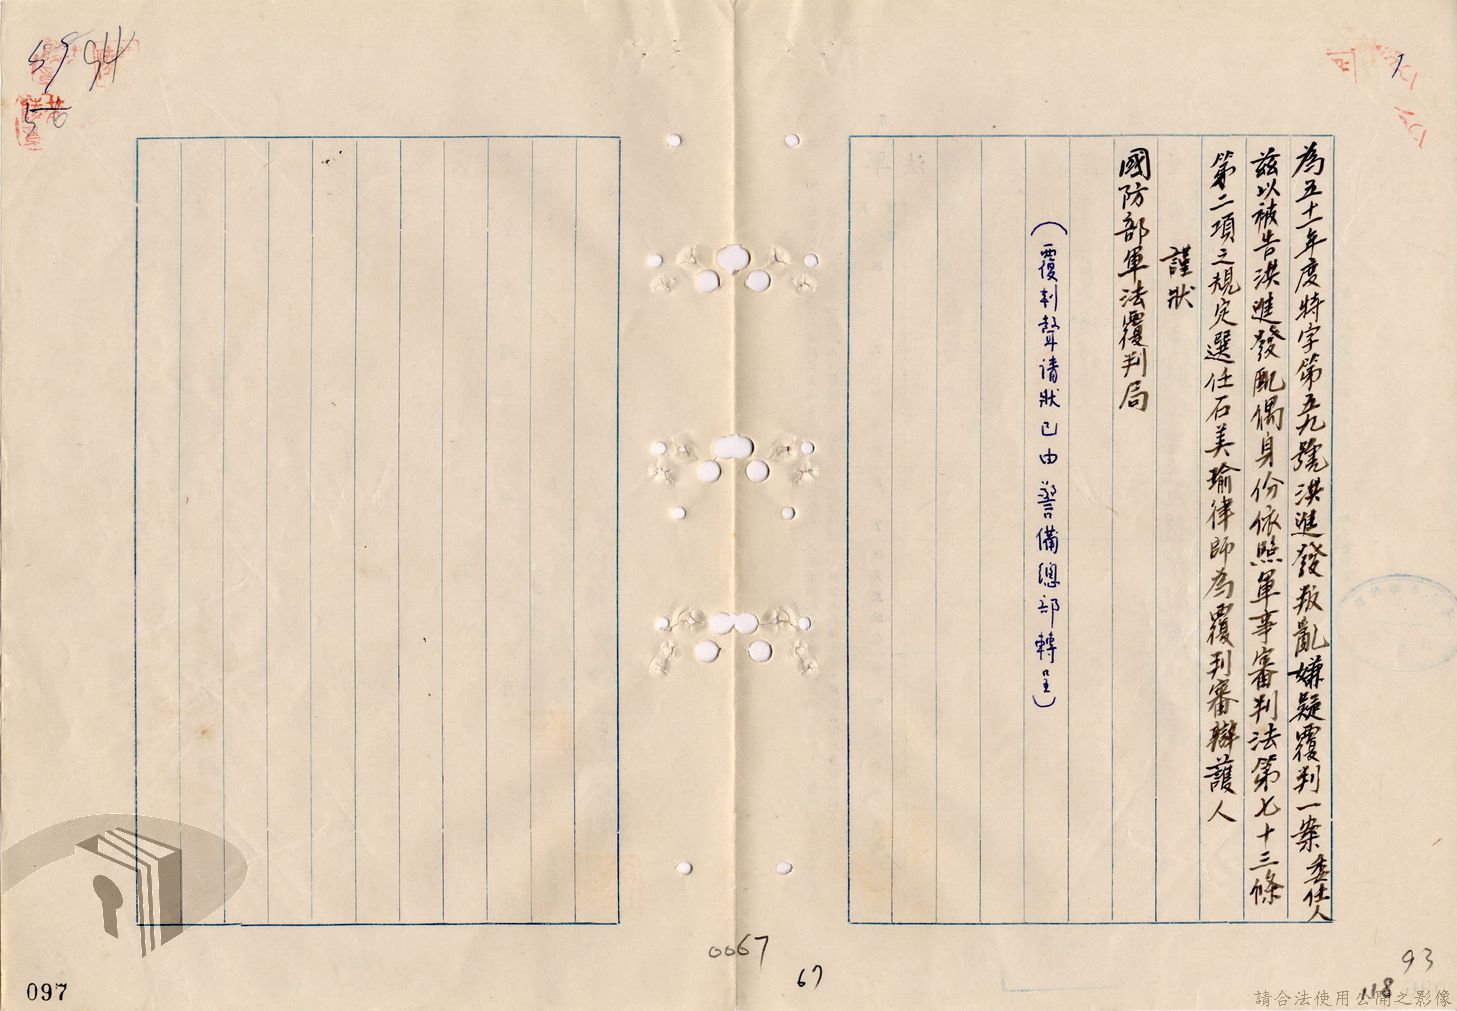 為五十一年度特字第五九號洪進發叛亂嫌疑覆判一案委任人
茲以被告洪進發配偶身份依照軍事審判法第七十三條
第二項之規定選任石美瑜律師為覆判審辯護人
謹狀
國防部軍法覆判局
(覆判聲請狀已由警備總部轉呈)
0067
67
93
118
097
請合法使用公開之影像